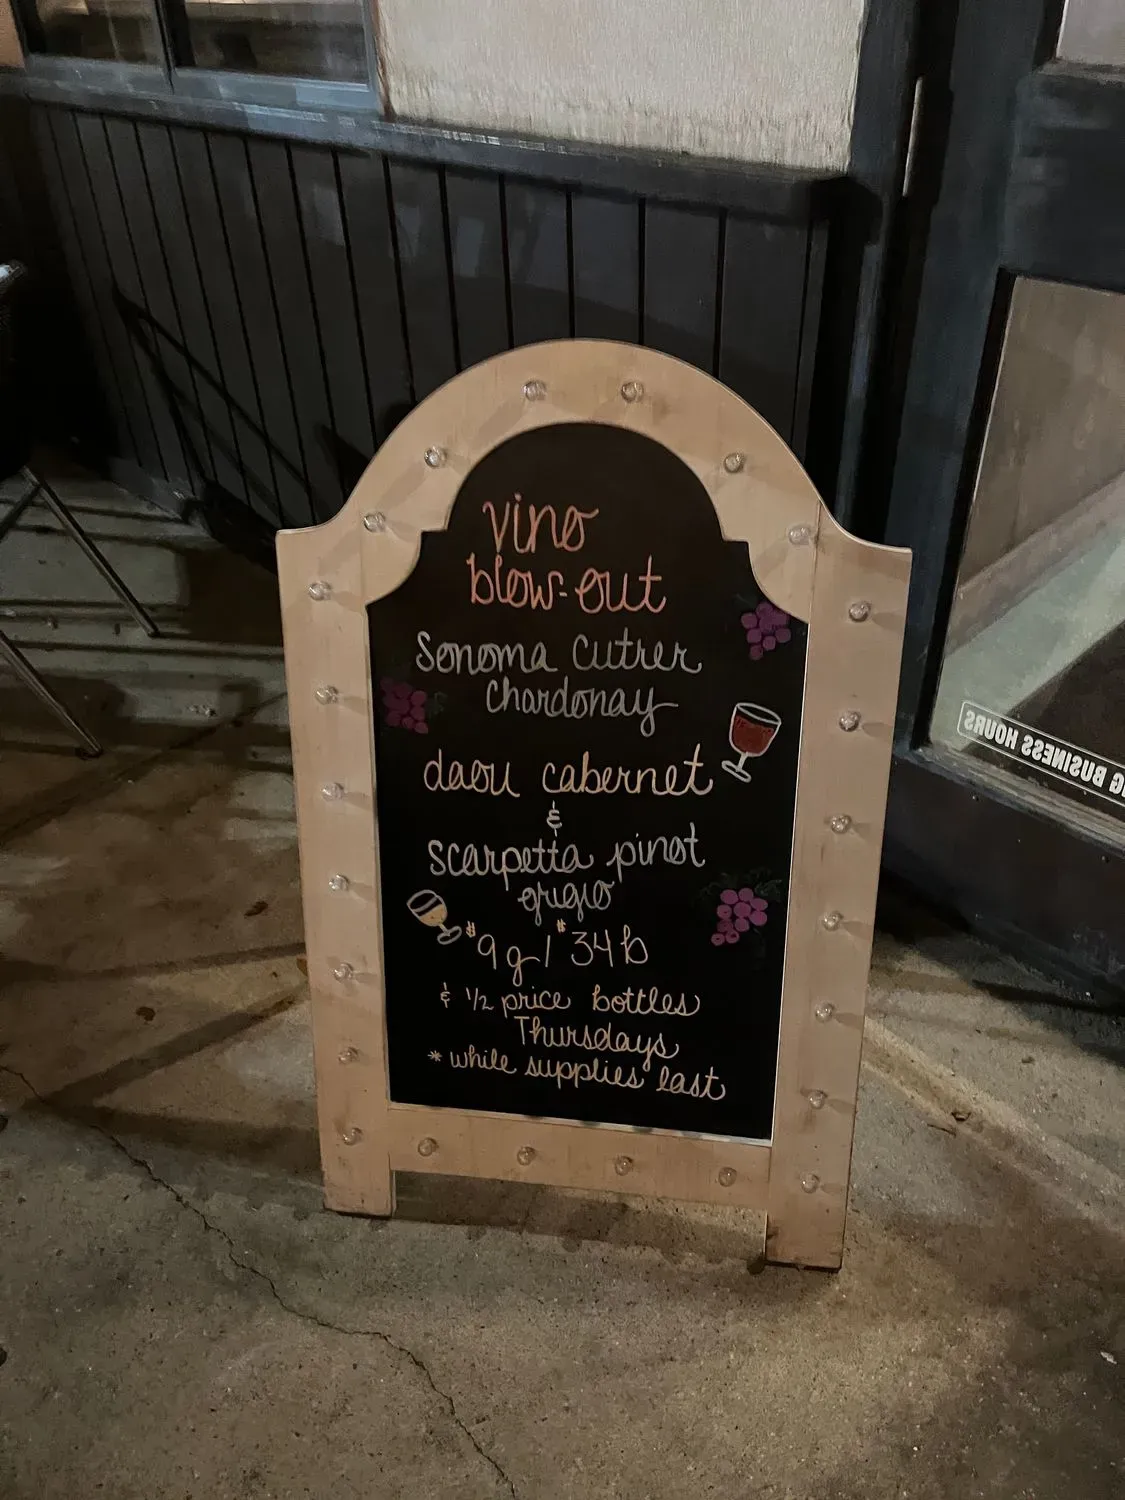 vino
blow-out
Sonoma Cutrer
Chardonay
daou cabernet
&
scarpetta pinot
grigio
$9g/$34b
& 1/2 price bottles
Thursdays
* while supplies last
G BUSINESS HOURS